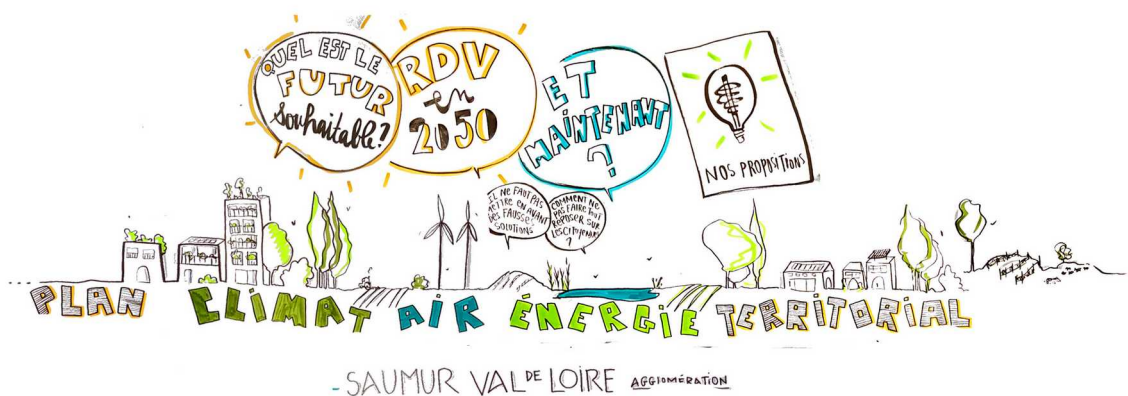 QUEL EST LE
FUTUR
souhaitable?
RDV
en
2050
ET
MAINTENANT
?
NOS PROPOSITIONS
IL NE FAUT PAS
METTRE EN AVANT
DES FAUSSES
SOLUTIONS
COMMENT NE
PAS FAIRE TOUT
REPOSER SUR
LES CITOYEN·NES
?
PLAN CLIMAT AIR ÉNERGIE TERRITORIAL
SAUMUR VAL DE LOIRE AGGLOMÉRATION